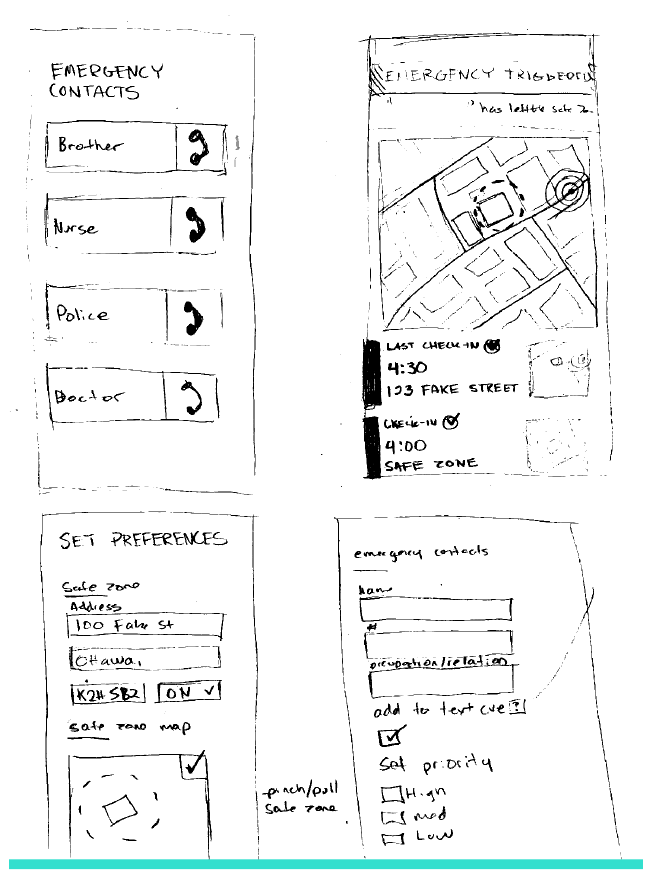 EMERGENCY
CONTACTS
Brother
Nurse
Police
Doctor
EMERGENCY TRIGGERED
has left safe
LAST CHECK-IN
4:30
123 FAKE STREET
CHECK-IN
4:00
SAFE ZONE
SET PREFERENCES
Safe zone
Address
100 Fake St
Ottawa,
K2H 5B2 ON
Safe zone map
pinch/pull
safe zone
emergency contacts
name
#
occupation/relation
add to text cue ?
Set priority
High
med
Low